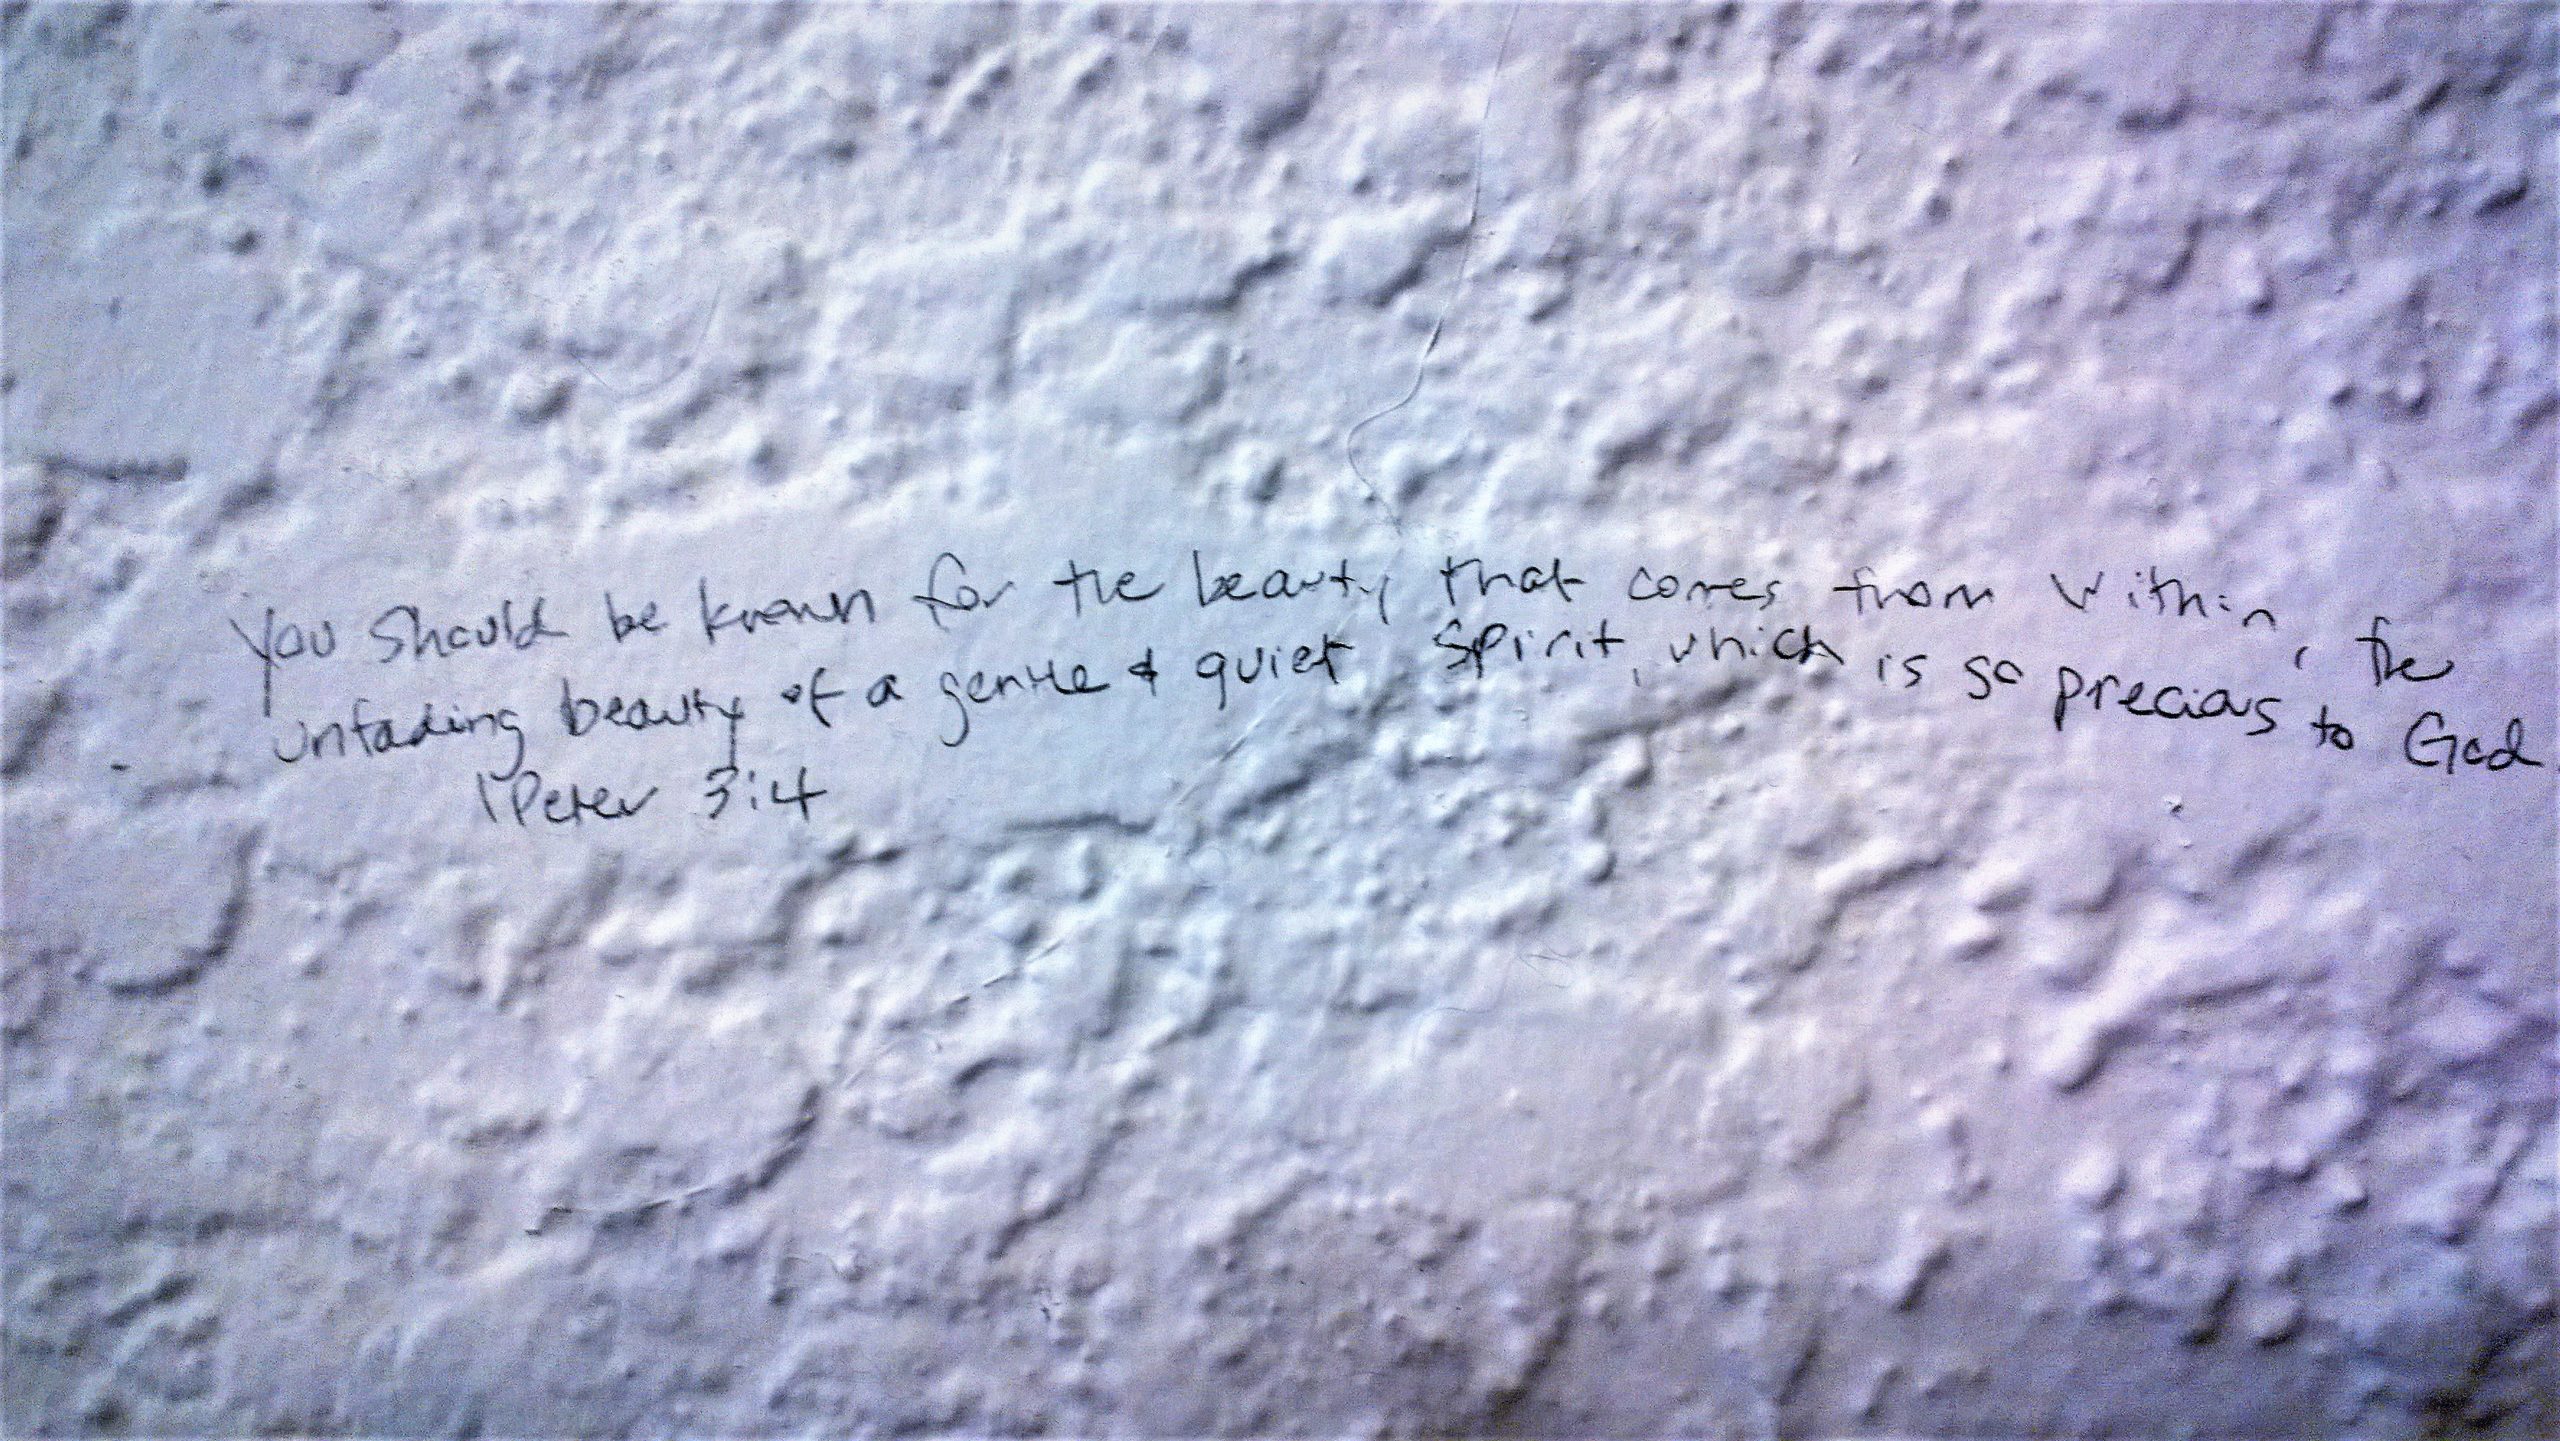 You should be known for the beauty that comes from within, the
unfading beauty of a gentle & quiet spirit, which is so precious to God.
1 Peter 3:4